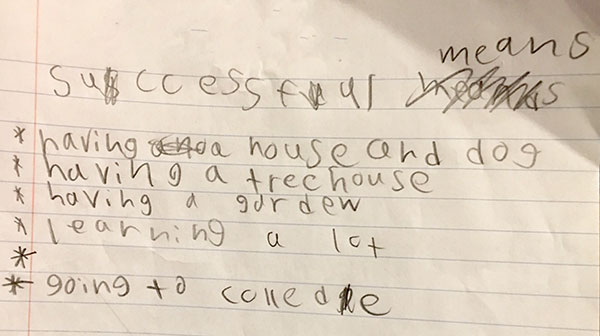 successful means
* having a house and dog
* having a treehouse
* having a garden
* learning a lot
*
* going to colledge